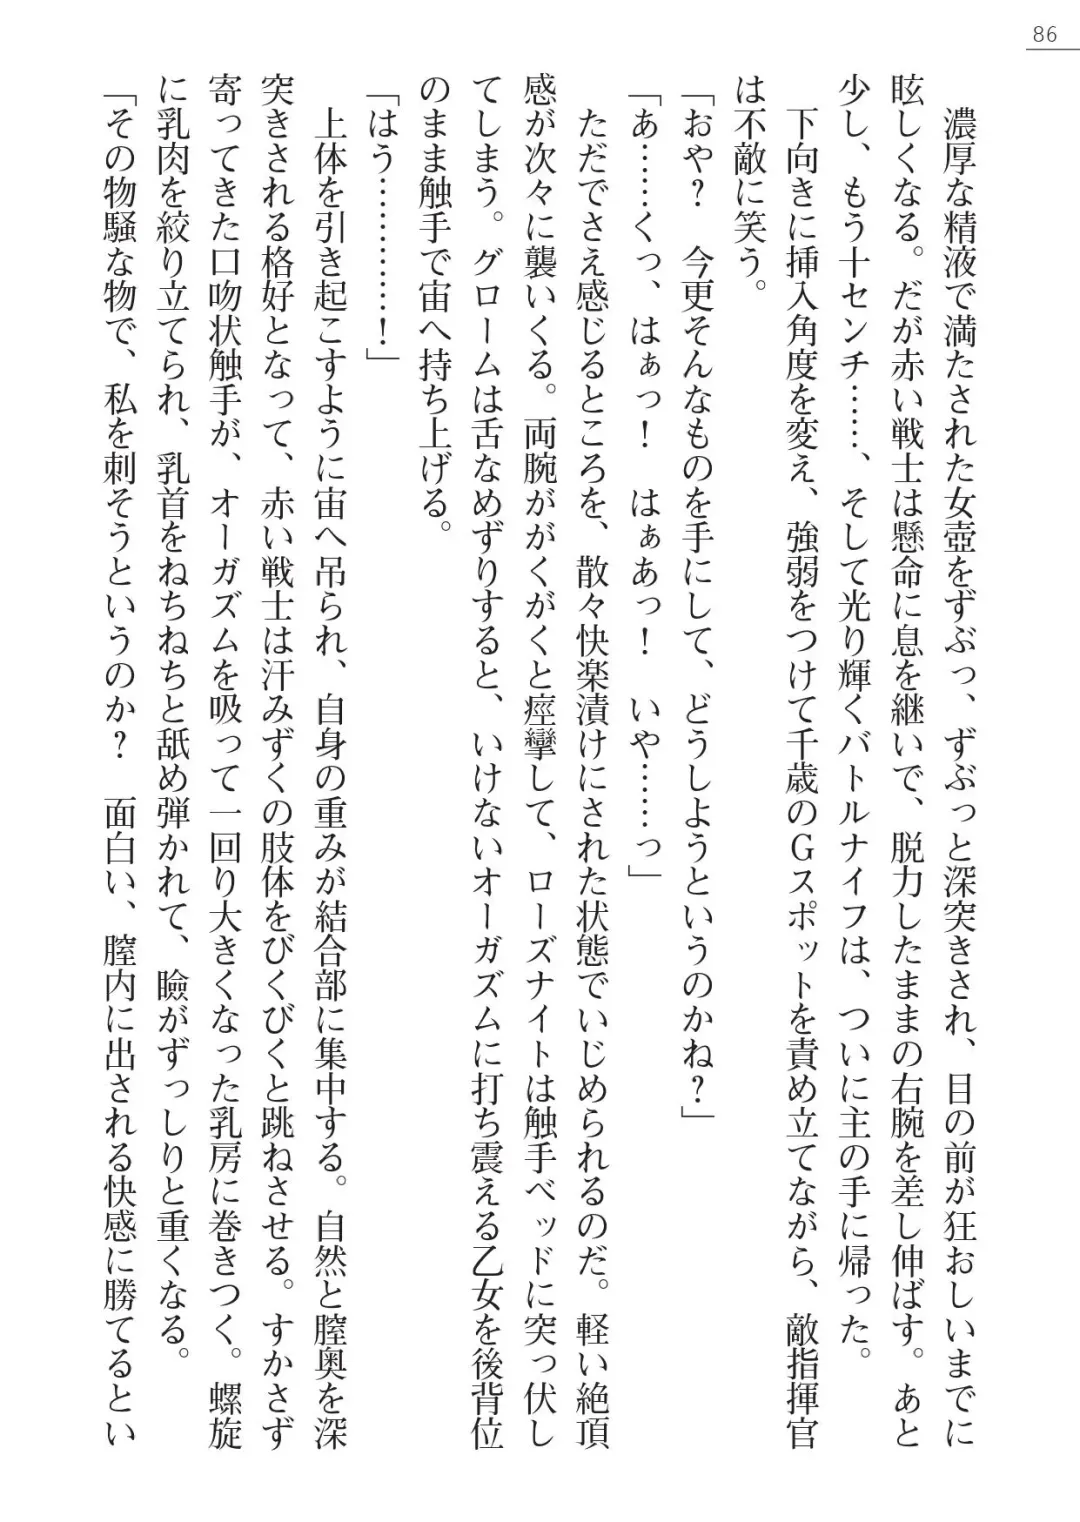 86
濃厚な精液で満たされた女壺をずぶっ、ずぶっと深突きされ、目の前が狂おしいまでに
眩しくなる。だが赤い戦士は懸命に息を継いで、脱力したままの右腕を差し伸ばす。あと
少し、もう十センチ……、そして光り輝くバトルナイフは、ついに主の手に帰った。
下向きに挿入角度を変え、強弱をつけて千歳のＧスポットを責め立てながら、敵指揮官
は不敵に笑う。
「おや？　今更そんなものを手にして、どうしようというのかね？」
「あ……くっ、はぁっ！　はぁあっ！　いや……っ」
ただでさえ感じるところを、散々快楽漬けにされた状態でいじめられるのだ。軽い絶頂
感が次々に襲いくる。両腕ががくがくと痙攣して、ローズナイトは触手ベッドに突っ伏し
てしまう。グロームは舌なめずりすると、いけないオーガズムに打ち震える乙女を後背位
のまま触手で宙へ持ち上げる。
「はう…………！」
上体を引き起こすように宙へ吊られ、自身の重みが結合部に集中する。自然と膣奥を深
突きされる格好となって、赤い戦士は汗みずくの肢体をびくびくと跳ねさせる。すかさず
寄ってきた口吻状触手が、オーガズムを吸って一回り大きくなった乳房に巻きつく。螺旋
に乳肉を絞り立てられ、乳首をねちねちと舐め弾かれて、瞼がずっしりと重くなる。
「その物騒な物で、私を刺そうというのか？　面白い、膣内に出される快感に勝てるとい